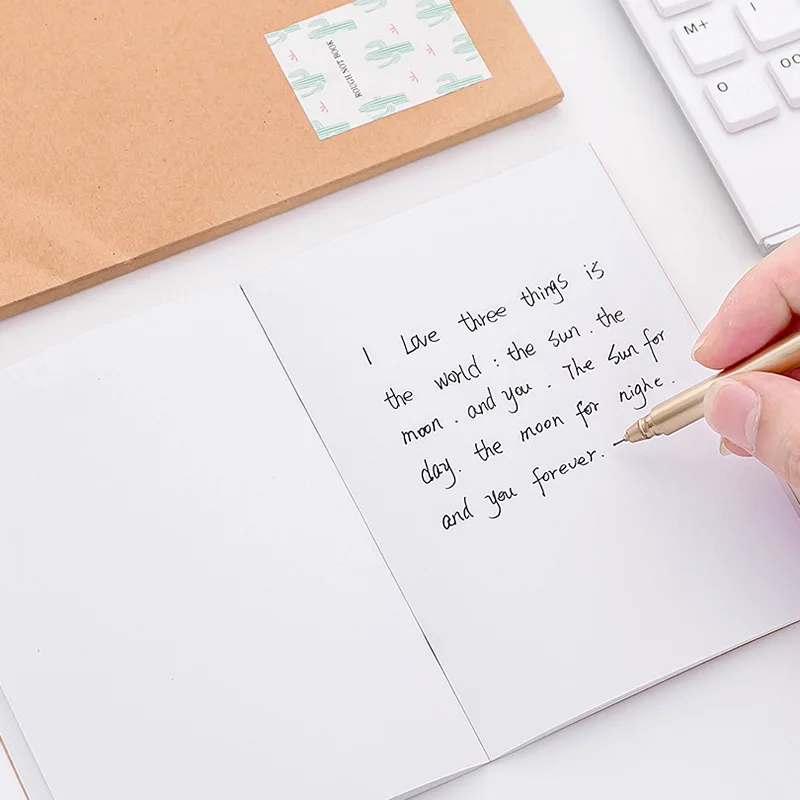 ROUGH NOT BOOK
M+
I
O
OO
I Love three things is
the world : the sun . the
moon . and you . The sun for
day . the moon for nighe .
and you forever .